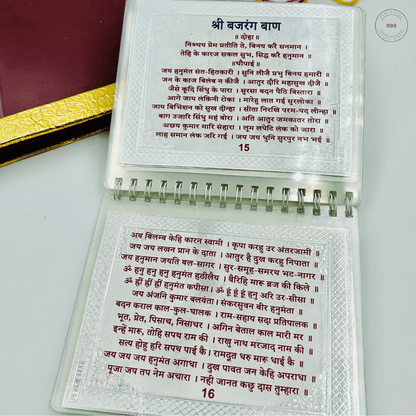 999
श्री बजरंग बाण
॥ दोहा॥
निश्चय प्रेम प्रतीति ते, बिनय करै सनमान ।
तेहि के कारज सकल सुभ, सिद्ध करै हनुमान ॥
॥चौपाई॥
जय हनुमंत संत-हितकारी । सुनि लीजै प्रभु बिनय हमारी ॥
जन के काज बिलंब न कीजै । आतुर दौरि महासुख दीजै ॥
जैसे कूदि सिंधु के पारा । सुरसा बदन पैठि बिस्तारा ॥
आगे जाय लंकिनी रोका । मारेहु लात गई सुरलोका ॥
जाय बिभिषान को सुख दीन्हा । सीता निरखि परम-पद लीन्हा ॥
बाग उजारि सिंधु महं बोरा । अति आतुर जमकातर तोरा ॥
अछय कुमार मारि संहारा । लूम लपेटि लंक को जारा ॥
लाह समान लंक जरि गई । जय जय धुनि सुरपुर नभ भई ॥
15
अब बिलम्ब केहि कारन स्वामी । कृपा करहु उर अंतरजामी ॥
जय जय लखन प्रान के दाता । आतुर है दुख करहु निपाता ॥
जय हनुमान जयति बल-सागर । सुर-समूह-समरथ भट-नागर ॥
ॐ हनु हनु हनु हनुमंत हठीलैय । बैरिहि मारू ब्रज की किले ॥
ॐ ह्रीं ह्रीं ह्रीं हनुमंत कपीसा । ॐ हूं हूं हूं हनु अरि उर-सीसा ॥
जय अंजनि कुमार बलवंता । संकरसुवन बीर हनुमंता ॥
बदन कराल काल-कुल-घालक । राम-सहाय सदा प्रतिपालक ॥
भूत, प्रेत, पिसाच, निसाचर । अगिन बेताल काल मारी मर ॥
इन्हें मारू, तोहि सपथ राम की । राखु नाथ मरजाद नाम की ॥
सत्य होहु हरि सपथ पाई कै । रामदूत धरु मारू धाई कै ॥
जय जय जय हनुमंत अगाधा । दुख पावत जन केहि अपराधा ॥
पूजा जप तप नेम अचारा । नही जानत कछु दास तुम्हारा ॥
16